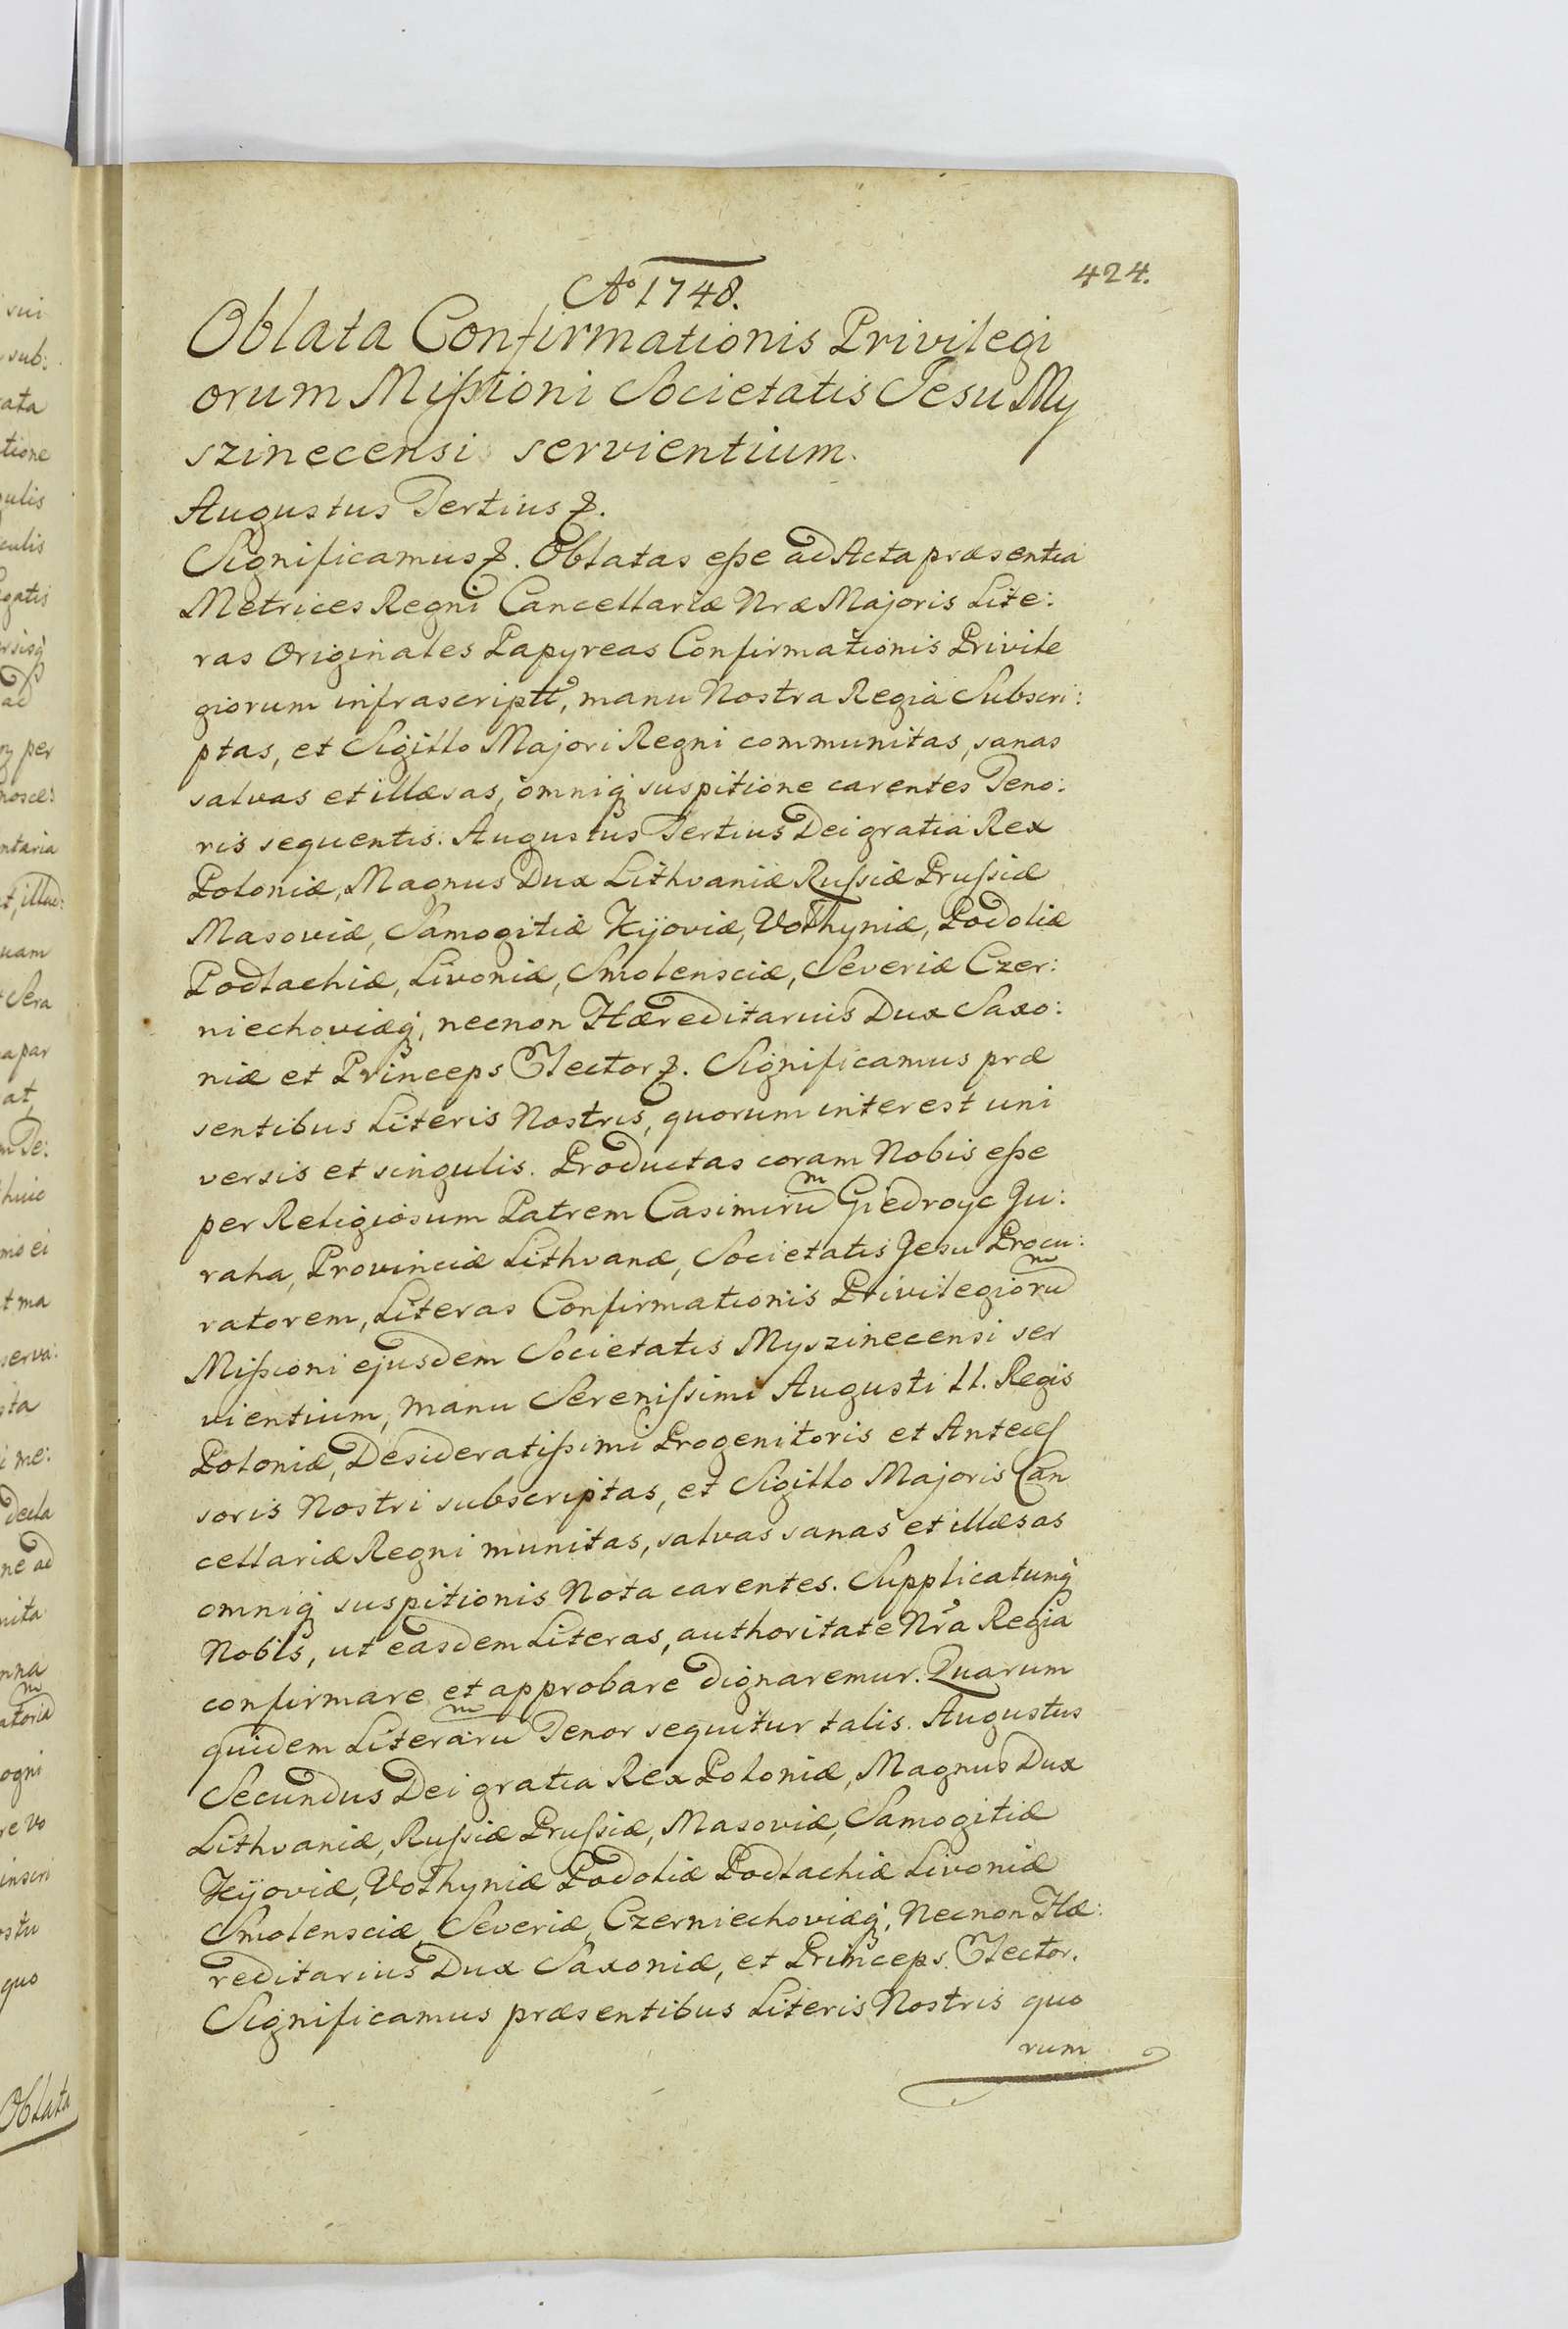 424.
Aº 1748.
Oblata Confirmationis Privilegi
orum Mißioni Societatis Jesu My
szinecensi servientium.
Augustus Tertius &.
Significamus &. Oblatas eße ad Acta præsentia
Metrices Regni Cancellariæ Nræ Majoris Lite:
ras Originales Papyreas Confirmationis Privile
giorum infrascriptt, manu Nostra Regia Subscri:
ptas, et Sigillo Majori Regni communitas, sanas
salvas et illæsas, omniq suspitione carentes Teno:
ris sequentis. Augustus Tertius Dei gratia Rex
Poloniæ, Magnus Dux Lithvaniæ Rußiæ Prußiæ
Masoviæ, Samogitiæ Kijoviæ, Volhyniæ, Podoliæ
Podlachiæ, Livoniæ, Smolensciæ, Severiæ Czer:
niechoviæq, necnon Hæreditarius Dux Saxo:
niæ et Princeps Elector &. Significamus præ
sentibus Literis Nostris, quorum interest uni
versis et singulis. Productas coram Nobis eße
per Religiosum Patrem Casimirum Giedroyc Ju:
raha, Provinciæ Lithvanæ, Societatis Jesu Procu:
ratorem, Literas Confirmationis Privilegiorum
Mißioni ejusdem Societatis Myszinecensi ser
vientium, manu Serenißimi Augusti II. Regis
Poloniæ, Desideratißimi Progenitoris et Anteceſ
soris Nostri subscriptas, et Sigillo Majoris Can
cellariæ Regni munitas, salvas sanas et illæsas
omniq suspitionis Nota carentes. Supplicatumq
Nobis, ut easdem Literas, authoritate Nra Regia
confirmare et approbare dignaremur. Quarum
quidem Literarum Tenor sequitur talis. Augustus
Secundus Dei gratia Rex Poloniæ, Magnus Dux
Lithvaniæ, Rußiæ Prußiæ, Masoviæ, Samogitiæ
Kijoviæ, Volhyniæ Podoliæ Podlachiæ Livoniæ
Smolensciæ, Severiæ, Czerniechoviæq, Necnon Hæ:
reditarius Dux Saxoniæ, et Princeps Elector.
Significamus præsentibus Literis Nostris quo
rum
Oblata